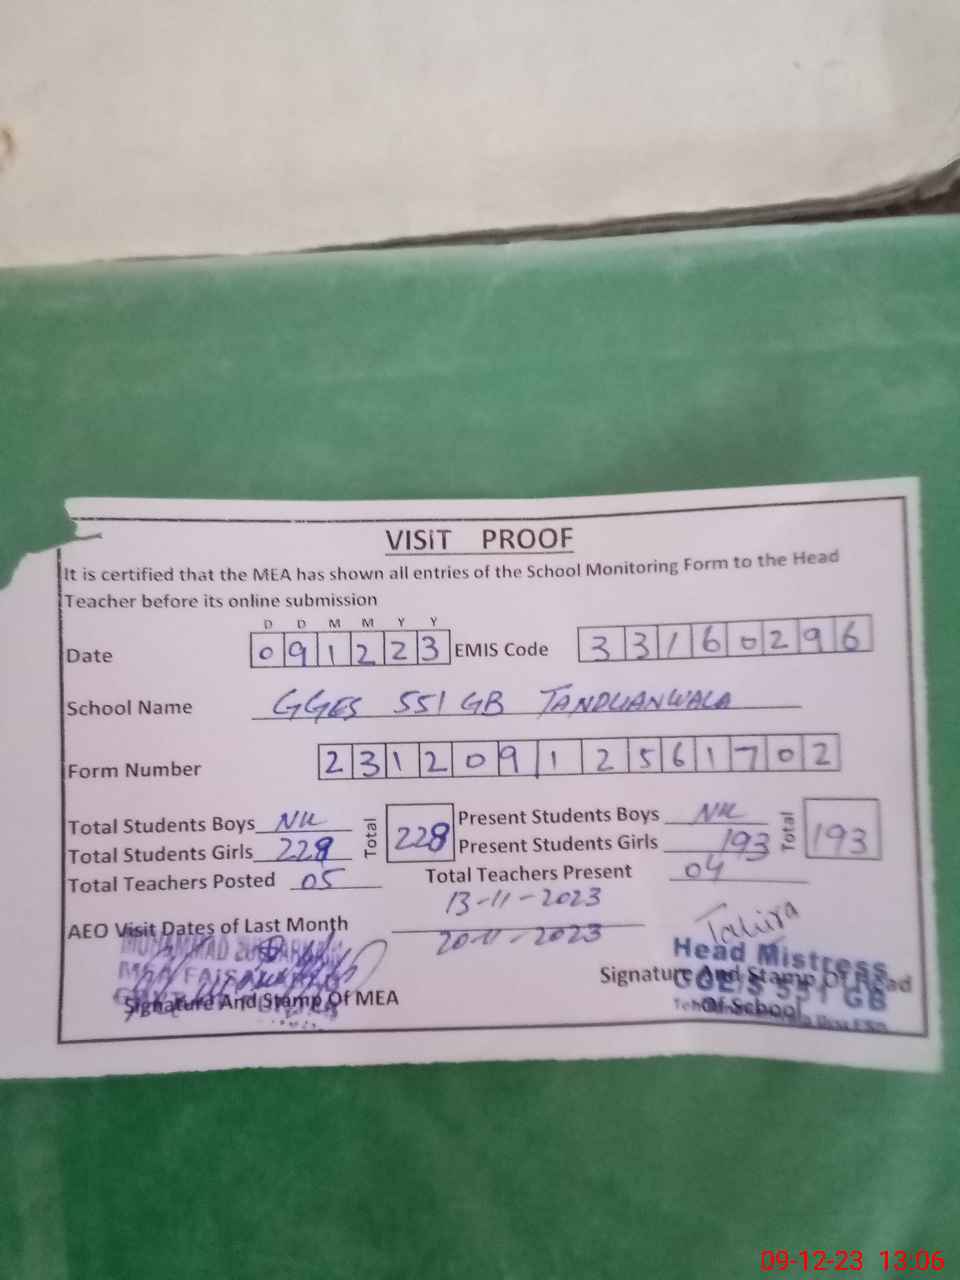 VISIT PROOF
It is certified that the MEA has shown all entries of the School Monitoring Form to the Head
Teacher before its online submission
D D M M Y Y
Date 0 9 1 2 2 3 EMIS Code 3 3 1 6 0 2 9 6
School Name GGES 551 GB TANDLIANWALA
Form Number 2 3 1 2 0 9 1 2 5 6 1 7 0 2
Total Students Boys Nil Total 228 Present Students Boys Nil Total 193
Total Students Girls 228 Present Students Girls 193
Total Teachers Posted 05 Total Teachers Present 04
13-11-2023
AEO Visit Dates of Last Month
20-11-2023
Tahira
MUHAMMAD
Head Mistress
MEA FAISALABAD
Signature And Stamp Of Head
GGES 551 GB
Signature And Stamp Of MEA
Of School
09-12-23 13:06